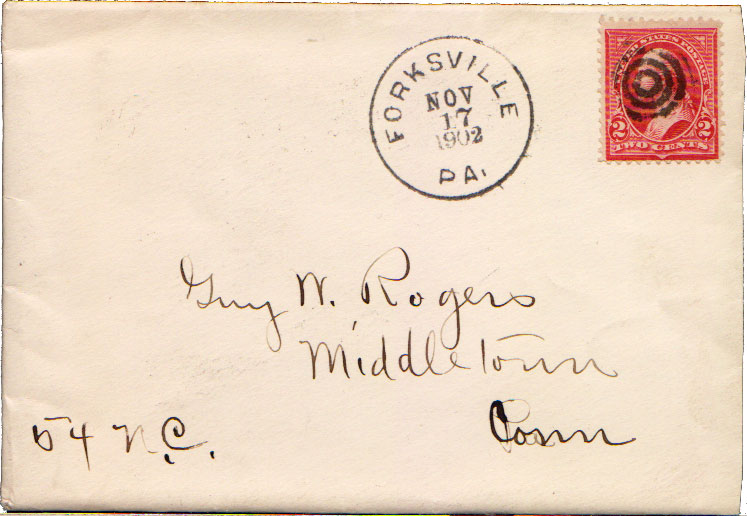 FORKSVILLE
NOV
17
1902
PA.
UNITED STATES POSTAGE
2 2
TWO CENTS
Guy W. Rogers
Middletown
Conn
54 N.C.